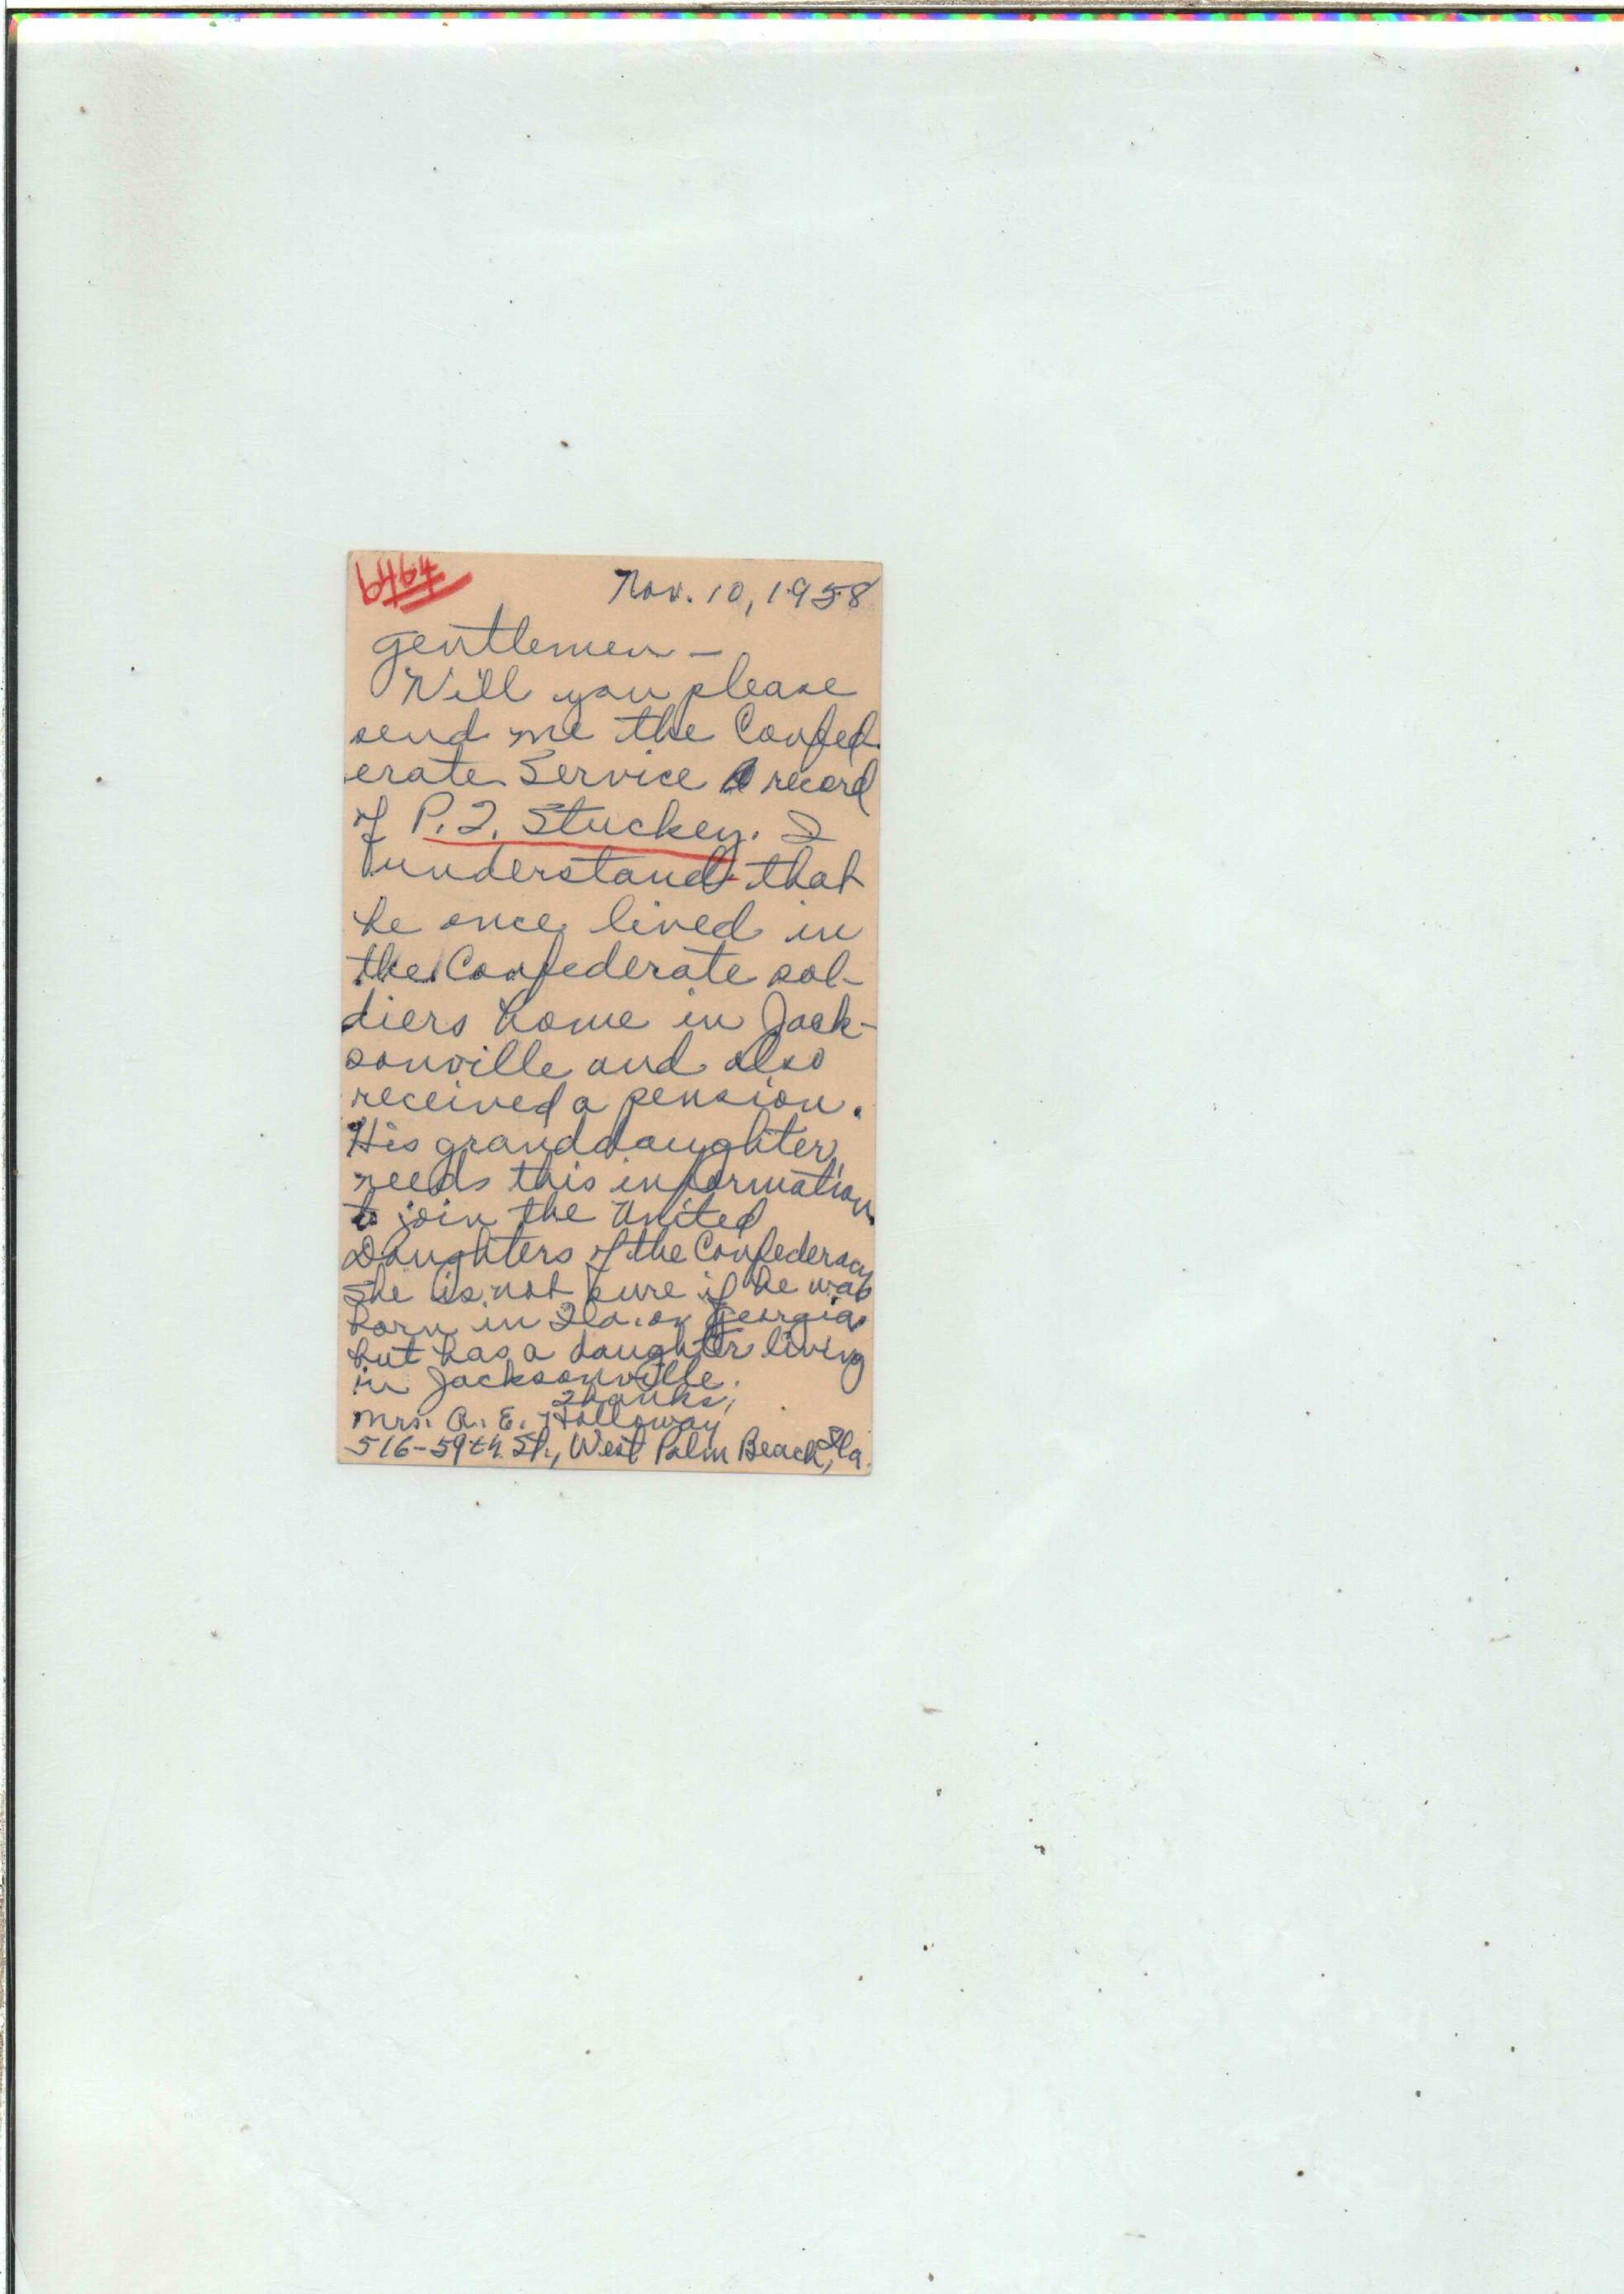 6464
Nov. 10, 1958
Gentlemen —
Will you please
send me the Confed-
erate Service record
of P. T. Stuckey. I
understand that
he once lived in
the Confederate sol-
diers home in Jack-
sonville and also
received a pension.
His granddaughter
needs this information
to join the United
Daughters of the Confederacy
She is not sure if he was
born in Fla. or Georgia,
but has a daughter living
in Jacksonville.
Thanks,
Mrs. A. E. Holloway
516-59th St., West Palm Beach, Fla.